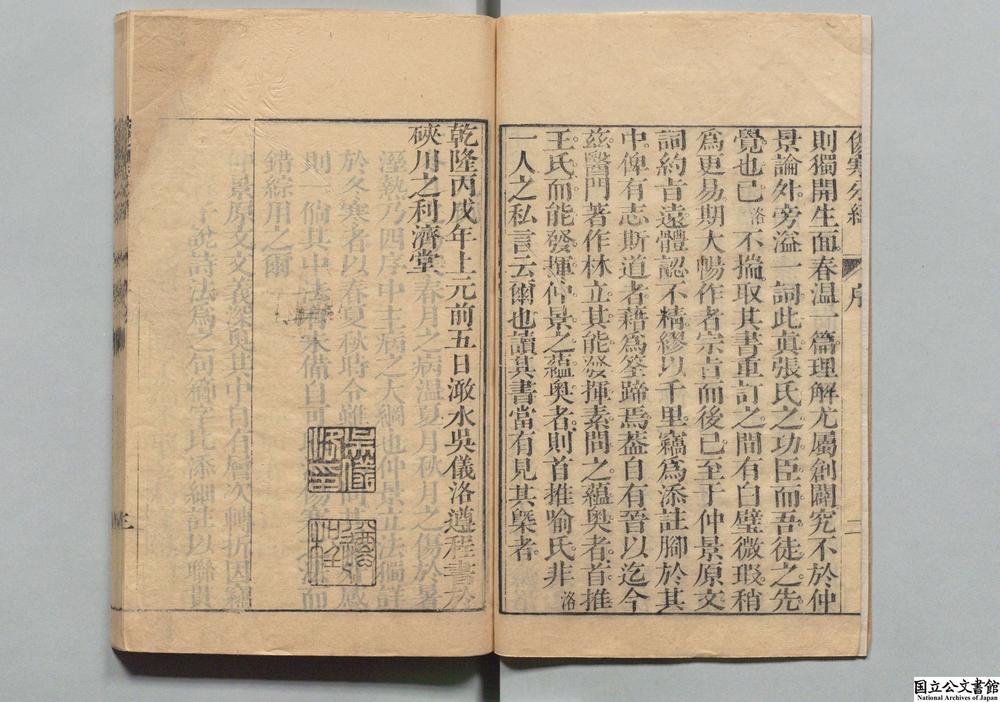 傷寒分經
序
二
則獨開生面春溫一篇理解尤屬創闢究不於仲
景論外旁溢一詞此眞張氏之功臣而吾徒之先
覺也已洛不揣取其書重訂之間有白璧微瑕稍
爲更易期大暢作者宗旨而後已至于仲景原文
詞約旨遠體認不精繆以千里竊爲添註腳於其
中俾有志斯道者藉爲筌蹄焉葢自有晉以迄今
茲醫門著作林立其能發揮素問之蘊奧者首推
王氏而能發揮仲景之蘊奧者則首推喻氏非洛
一人之私言云爾也讀其書當有見其槩者
乾隆丙戌年上元前五日澉水吳儀洛遵程書于
硤川之利濟堂
吳儀洛印
三
国立公文書館
National Archives of Japan